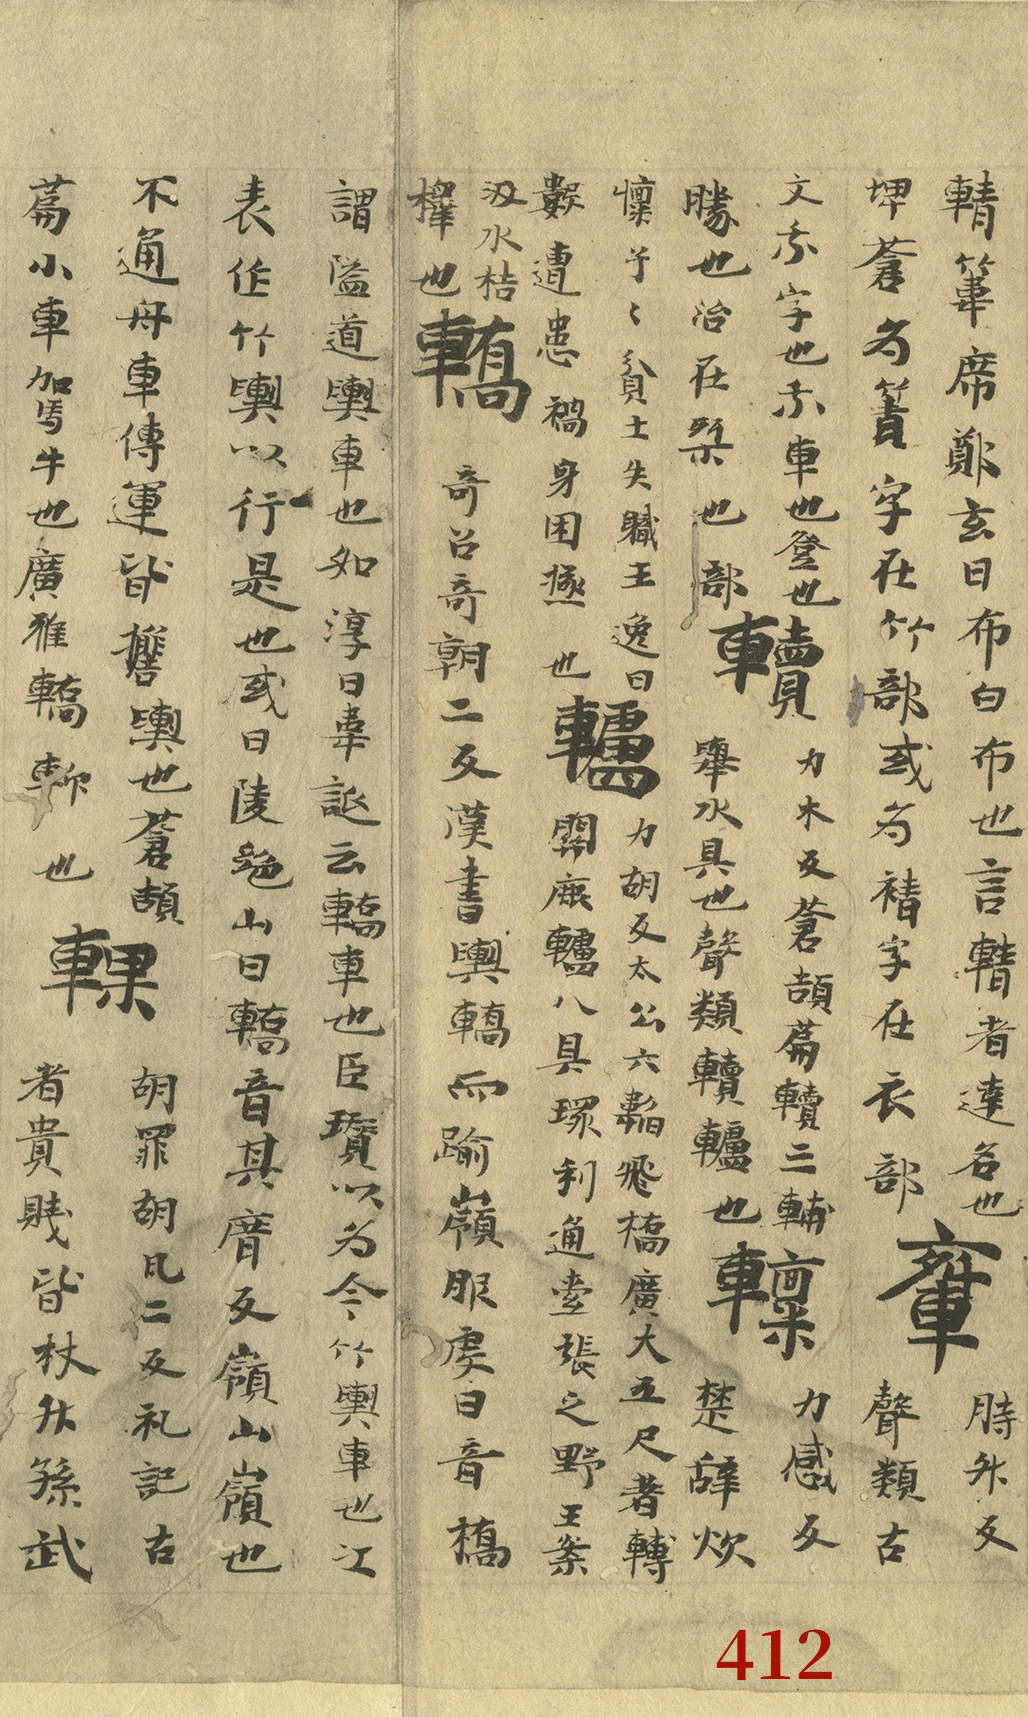 輤葦席鄭玄曰布白布也言輤者達名也
埤蒼為䈜字在竹部或為䄢字在衣部
𨋖
時升反
聲類古
文𠅞字也𠅞車也登也
勝也治在椉也部
轒
力木反蒼頡篇轒三輔
轝水具也聲類轒轤也
𨎭
力感反
楚辭炊
懔予〻貧士失職王逸曰
數遭患禍身困極也
轤
力胡反太公六韜飛橋廣大五尺者轉
關鹿轤八具環利通索張之野王案
汲水桔
橰也
轎
奇召奇朝二反漢書輿轎而踰嶺服虔曰音橋
謂隘道輿車也如淳曰韋誕云轎車也臣瓚以為今竹輿車也江
表作竹輿以行是也或曰陵絶山曰轎音其廇反嶺山嶺也
不通舟車傳運皆擔輿也蒼頡
篇小車駕馬牛也廣雅轎䡊也
輠
胡罪胡瓦二反礼記古
者貴賤皆杖升孫武
412